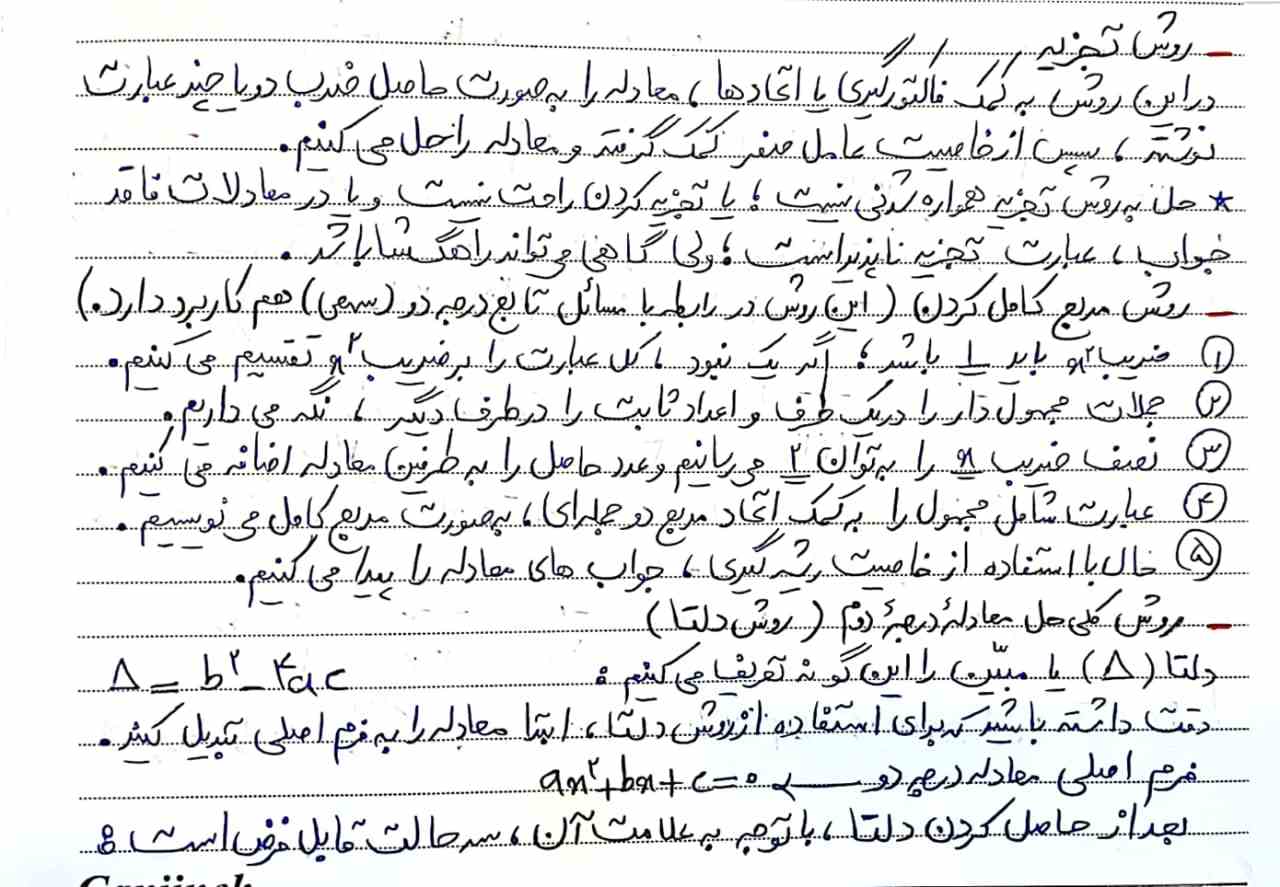 - روش تجزیه
در این روش به کمک فاکتورگیری یا اتحادها، معادله را به صورت حاصل ضرب دو یا چند عبارت
نوشته، سپس از خاصیت عامل صفر کمک گرفته و معادله را حل می کنیم.
* حل به روش تجزیه همواره شدنی نیست؛ یا تجزیه کردن راحت نیست و یا در معادلات فاقد
جواب، عبارت تجزیه ناپذیر است؛ ولی گاهی می تواند راهگشا باشد.
- روش مربع کامل کردن (این روش در رابطه با مسائل تابع درجه دو (سهمی) هم کاربرد دارد.)
① ضریب x² باید 1 باشد؛ اگر یک نبود، کل عبارت را بر ضریب x² تقسیم می کنیم.
② جملات مجهول دار را در یک طرف و اعداد ثابت را در طرف دیگر، نگه می داریم.
③ نصف ضریب x را به توان ۲ می رسانیم و عدد حاصل را به طرفین معادله اضافه می کنیم.
④ عبارت شامل مجهول را به کمک اتحاد مربع دو جمله ای، به صورت مربع کامل می نویسیم.
⑤ حال با استفاده از خاصیت ریشه گیری، جواب های معادله را پیدا می کنیم.
- روش کلی حل معادلهٔ درجهٔ دوم (روش دلتا)
دلتا (Δ) یا مبیّن را این گونه تعریف می کنیم: Δ = b² - ۴ac
دقت داشته باشید که برای استفاده از روش دلتا، ابتدا معادله را به فرم اصلی تبدیل کنید.
فرم اصلی معادله درجه دو ax² + bx + c = ۰
بعد از حاصل کردن دلتا، با توجه به علامت آن، سه حالت قابل فرض است: